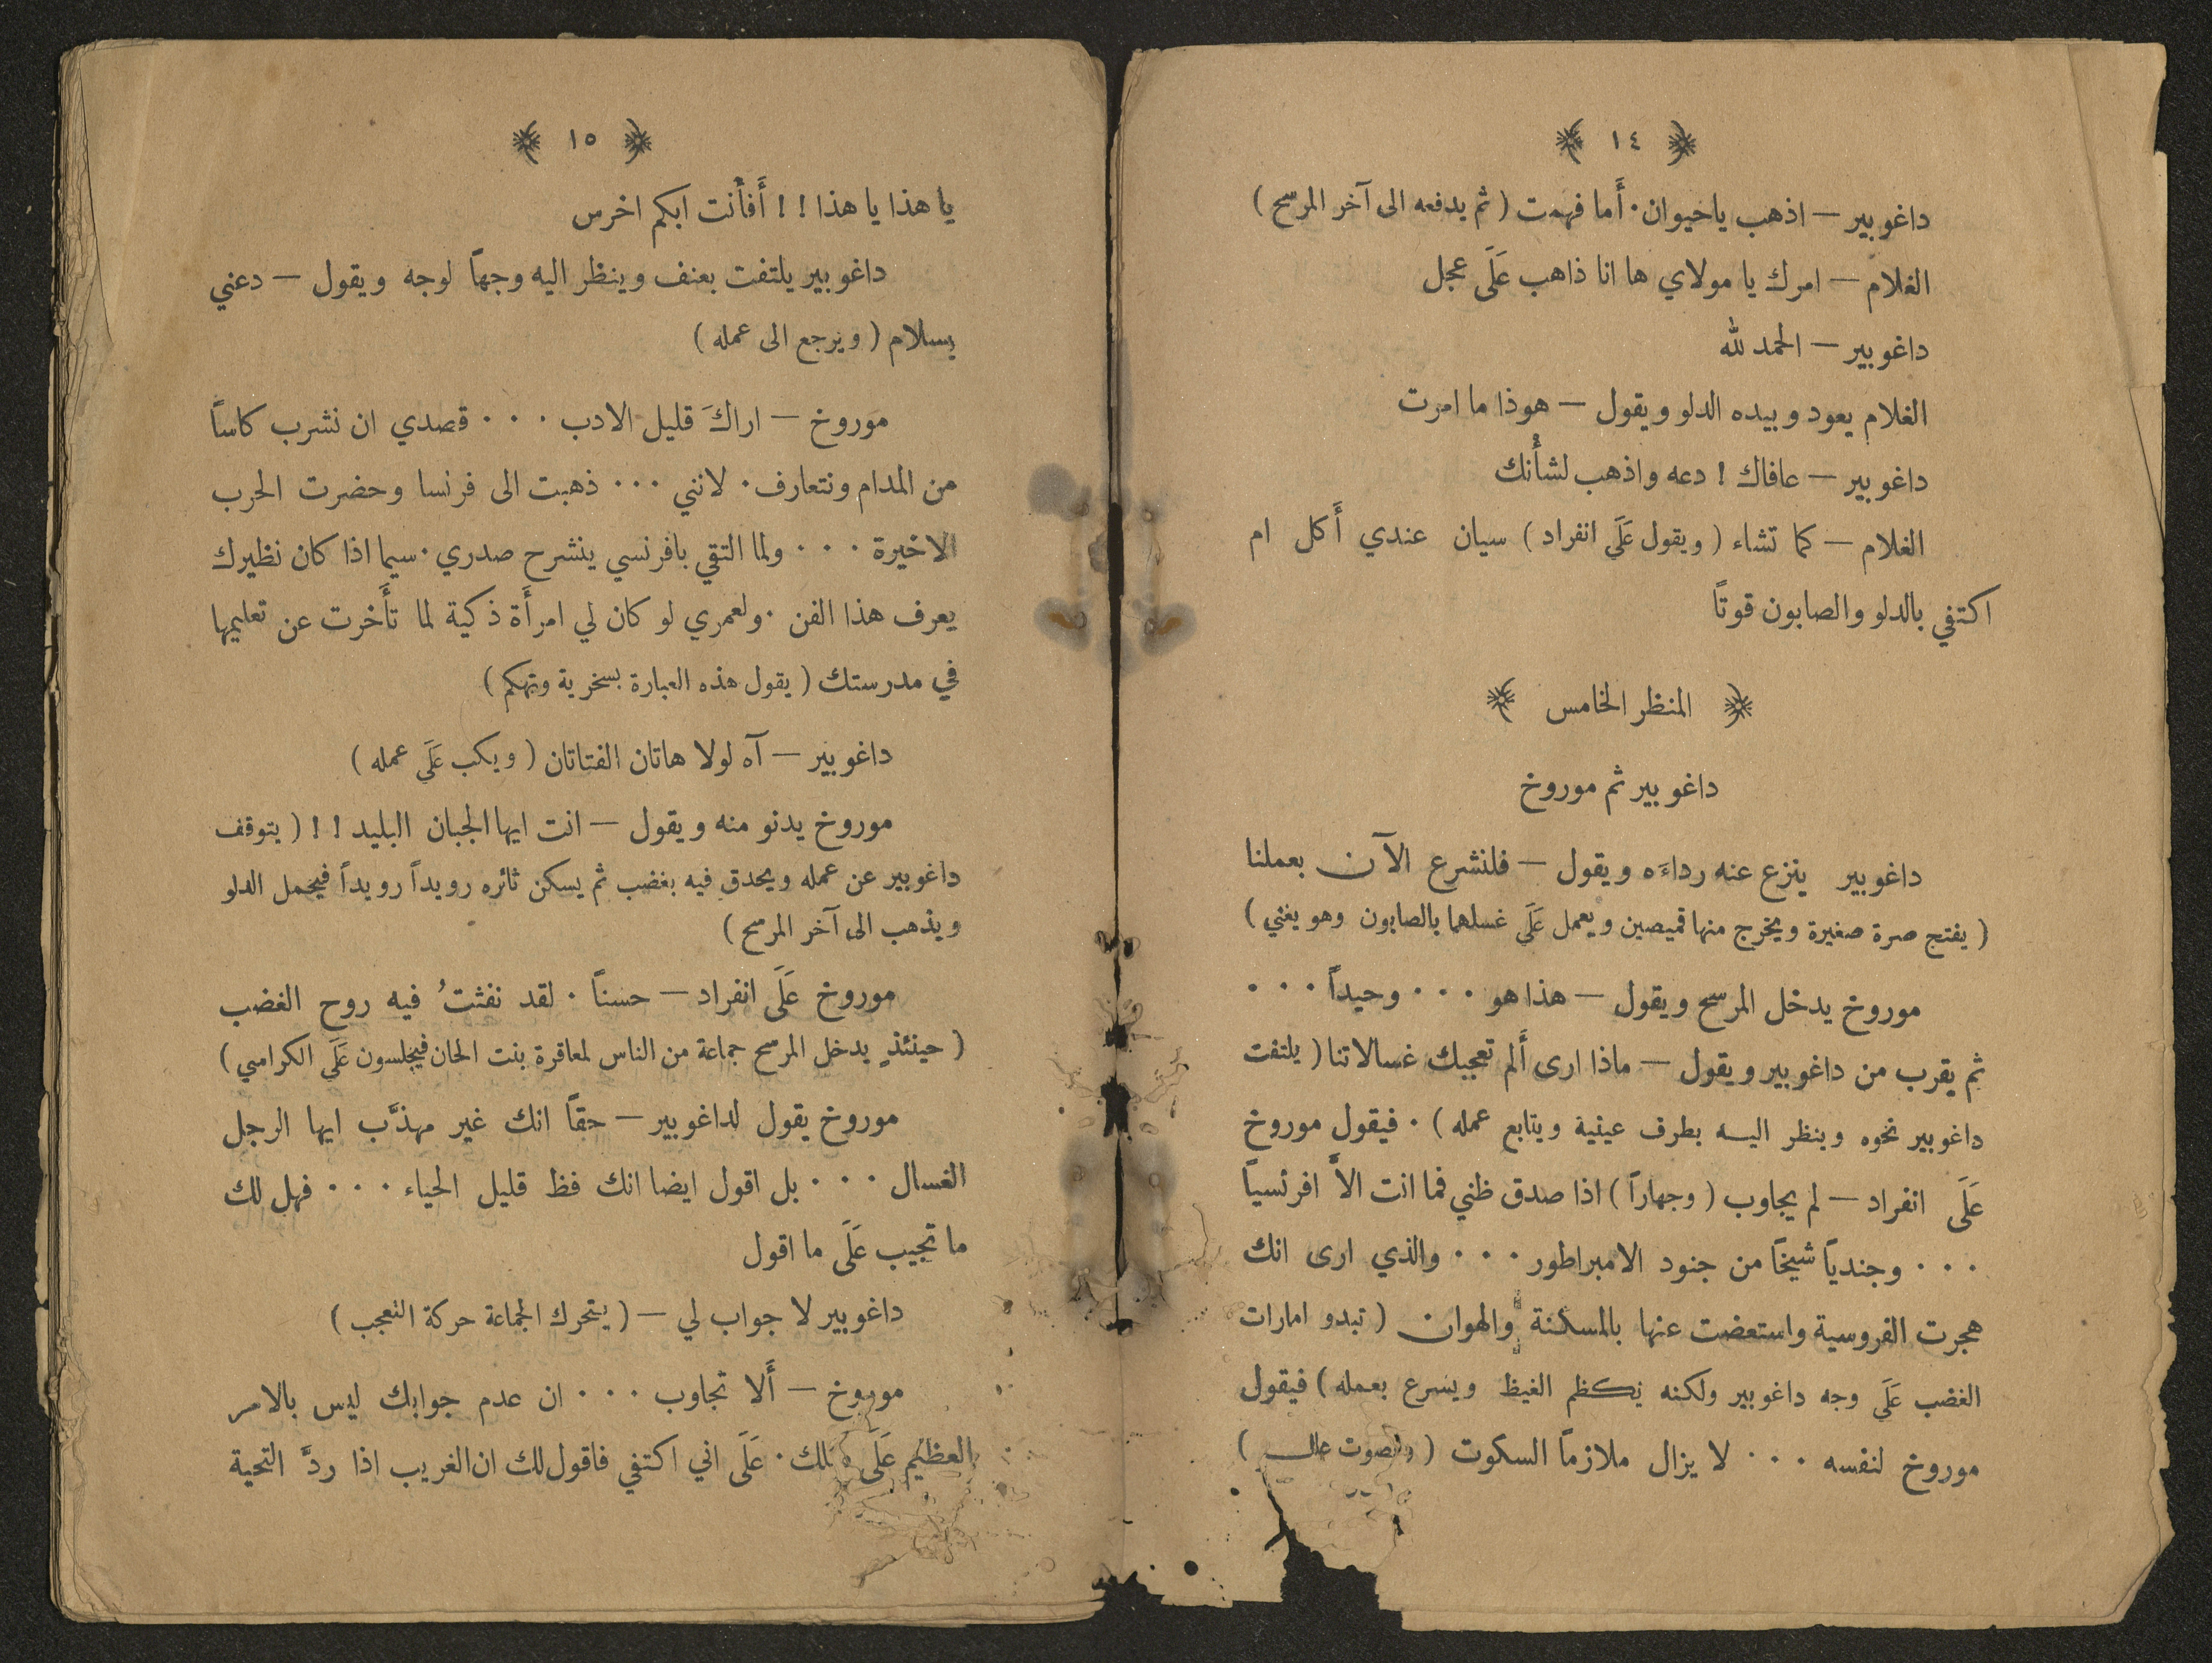 ﴿ ١٤ ﴾
داغوبير — اذهب ياحيوان. أَما فهمت ( ثم يدفعه الى آخر المرسح )
الغلام — امرك يا مولاي ها انا ذاهب عَلَى عجل
داغوبير — الحمد لله
الغلام يعود وبيده الدلو ويقول — هوذا ما امرت
داغوبير — عافاك ! دعه واذهب لشأنك
الغلام — كما تشاء ( ويقول عَلَى انفراد ) سيان عندي أَكل ام
اكتفي بالدلو والصابون قوتاً
﴿ المنظر الخامس ﴾
داغوبير ثم موروخ
داغوبير ينزع عنه رداءَه ويقول — فلنشرع الآن بعملنا
( يفتح صرة صغيرة ويخرج منها قميصين ويعمل عَلَى غسلهما بالصابون وهو يغني )
موروخ يدخل المرسح ويقول — هذا هو . . . وحيداً . . .
ثم يقرب من داغوبير ويقول — ماذا ارى أَلم تعجبك غسالاتنا ( يلتفت
داغوبير نحوه وينظر اليه بطرف عينية ويتابع عمله ) . فيقول موروخ
عَلَى انفراد — لم يجاوب ( وجهاراً ) اذا صدق ظني فما انت الاَّ افرنسياً
. . . وجندياً شيخاً من جنود الامبراطور . . . والذي ارى انك
هجرت الفروسية واستعضت عنها بالمسكنة والهوان ( تبدو امارات
الغضب عَلَى وجه داغوبير ولكنه يكظم الغيظ ويسرع بعمله ) فيقول
موروخ لنفسه . . . لا يزال ملازماً السكوت ( وبصوت عال )
﴿ ١٥ ﴾
يا هذا يا هذا ! ! أَفأنت ابكم اخرس
داغوبير يلتفت بعنف وينظر اليه وجهاً لوجه ويقول — دعني
بسلام ( ويرجع الى عمله )
موروخ — اراكَ قليل الادب . . . قصدي ان نشرب كاساً
من المدام ونتعارف. لانني . . . ذهبت الى فرنسا وحضرت الحرب
الاخيرة . . . ولما التقي بافرنسي ينشرح صدري. سيما اذا كان نظيرك
يعرف هذا الفن . ولعمري لو كان لي امرأَة ذكية لما تأَخرت عن تعليمها
في مدرستك ( يقول هذه العبارة بسخرية وتهكم )
داغوبير — آه لولا هاتان الفتاتان ( ويكب عَلَى عمله )
موروخ يدنو منه ويقول — انت ايها الجبان البليد ! ! ( يتوقف
داغوبير عن عمله ويحدق فيه بغضب ثم يسكن ثائره رويداً رويداً فيحمل الدلو
ويذهب الى آخر المرسح )
موروخ عَلَى انفراد — حسناً . لقد نفثتُ فيه روح الغضب
( حينئذٍ يدخل المرسح جماعة من الناس لمعاقرة بنت الحان فيجلسون عَلَى الكراسي )
موروخ يقول لداغوبير — حقاً انك غير مهذَّب ايها الرجل
الغسال . . . بل اقول ايضا انك فظ قليل الحياء . . . فهل لك
ما تجيب عَلَى ما اقول
داغوبير لا جواب لي — ( يتحرك الجماعة حركة التعجب )
موروخ — أَلا تجاوب . . . ان عدم جوابك ليس بالامر
العظيم عَلَى مثلك . عَلَى اني اكتفي فاقول لك ان الغريب اذا ردَّ التحية